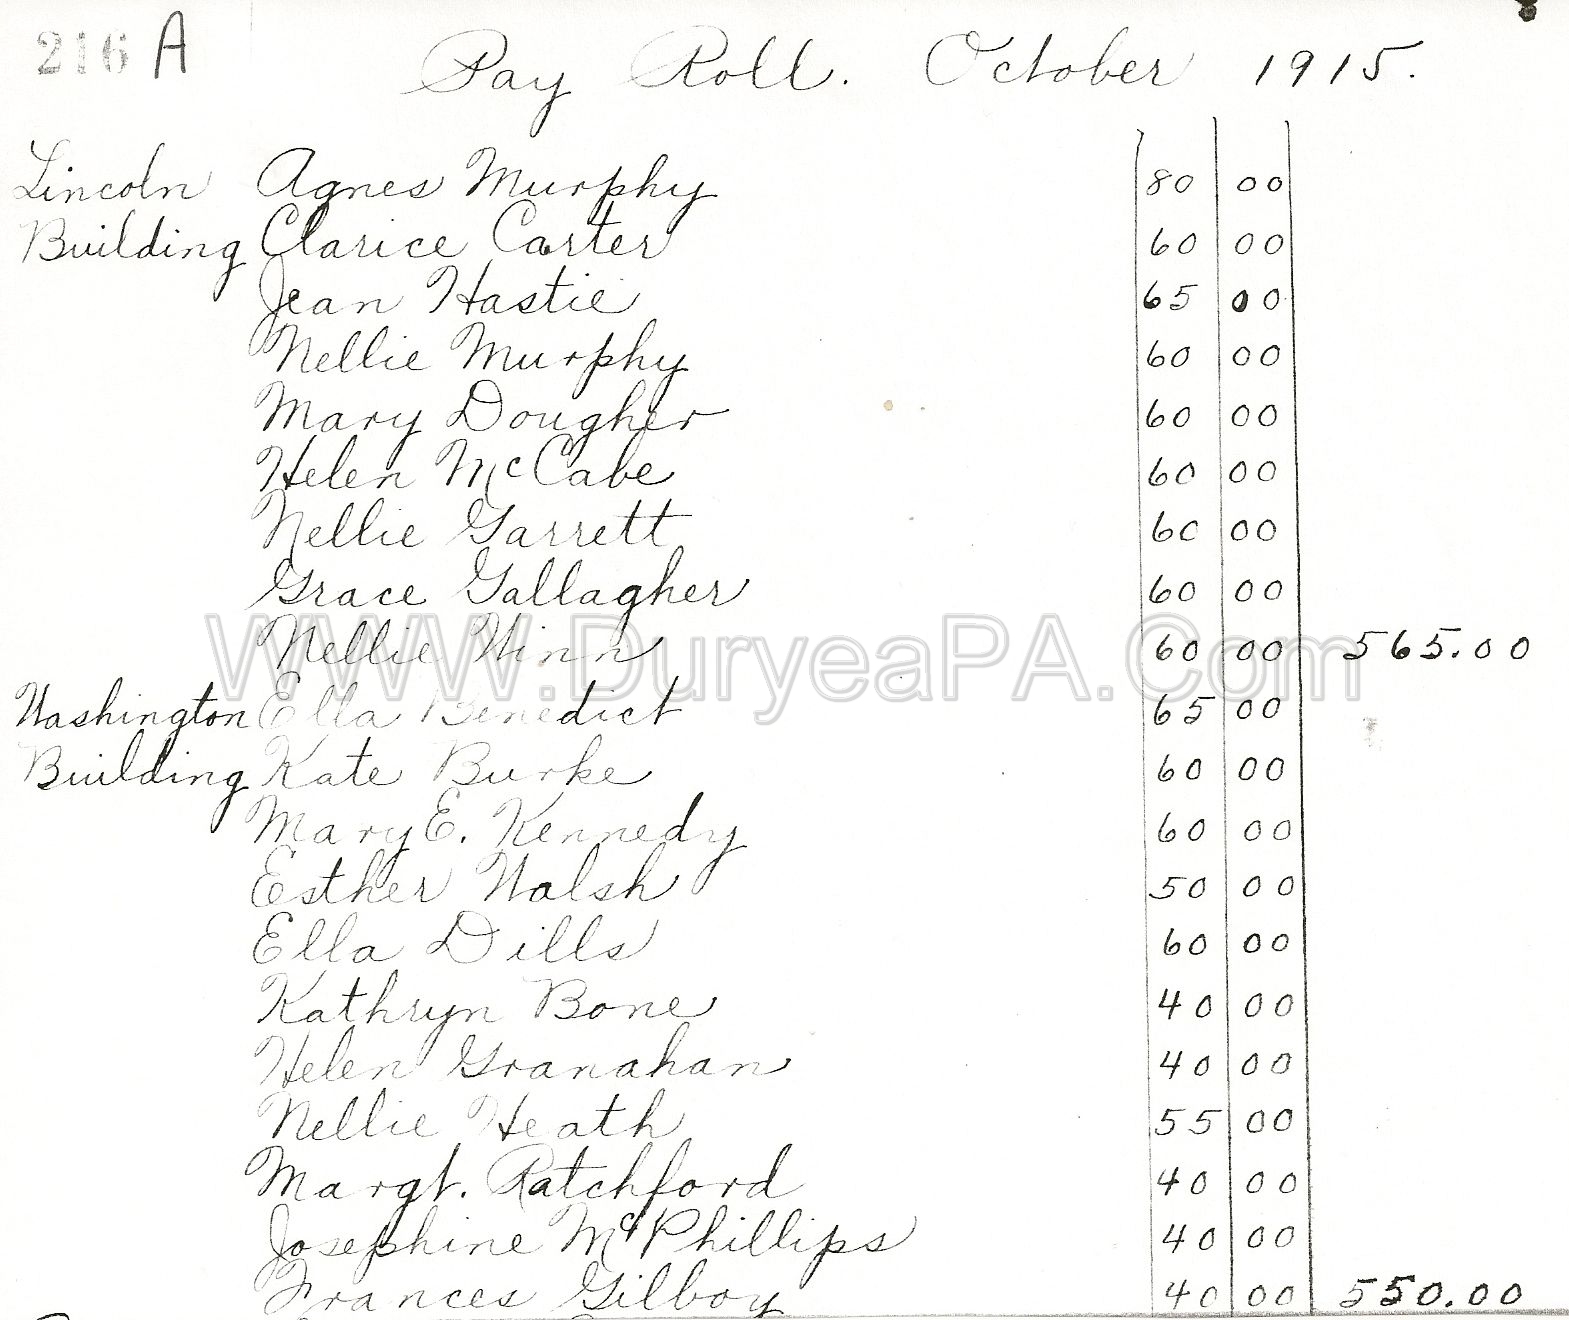 216 A
Pay Roll. October 1915.
Lincoln Agnes Murphy 80 00
Building Clarice Carter 60 00
Jean Hastie 65 00
Nellie Murphy 60 00
Mary Dougher 60 00
Helen McCabe 60 00
Nellie Garrett 60 00
Grace Gallagher 60 00
Nellie Winn 60 00 565.00
WWW.DuryeaPA.Com
Washington Ella Benedict 65 00
Building Kate Burke 60 00
Mary E. Kennedy 60 00
Esther Walsh 50 00
Ella Dills 60 00
Kathryn Bone 40 00
Helen Granahan 40 00
Nellie Heath 55 00
Margt. Ratchford 40 00
Josephine McPhillips 40 00
Frances Gilboy 40 00 550.00